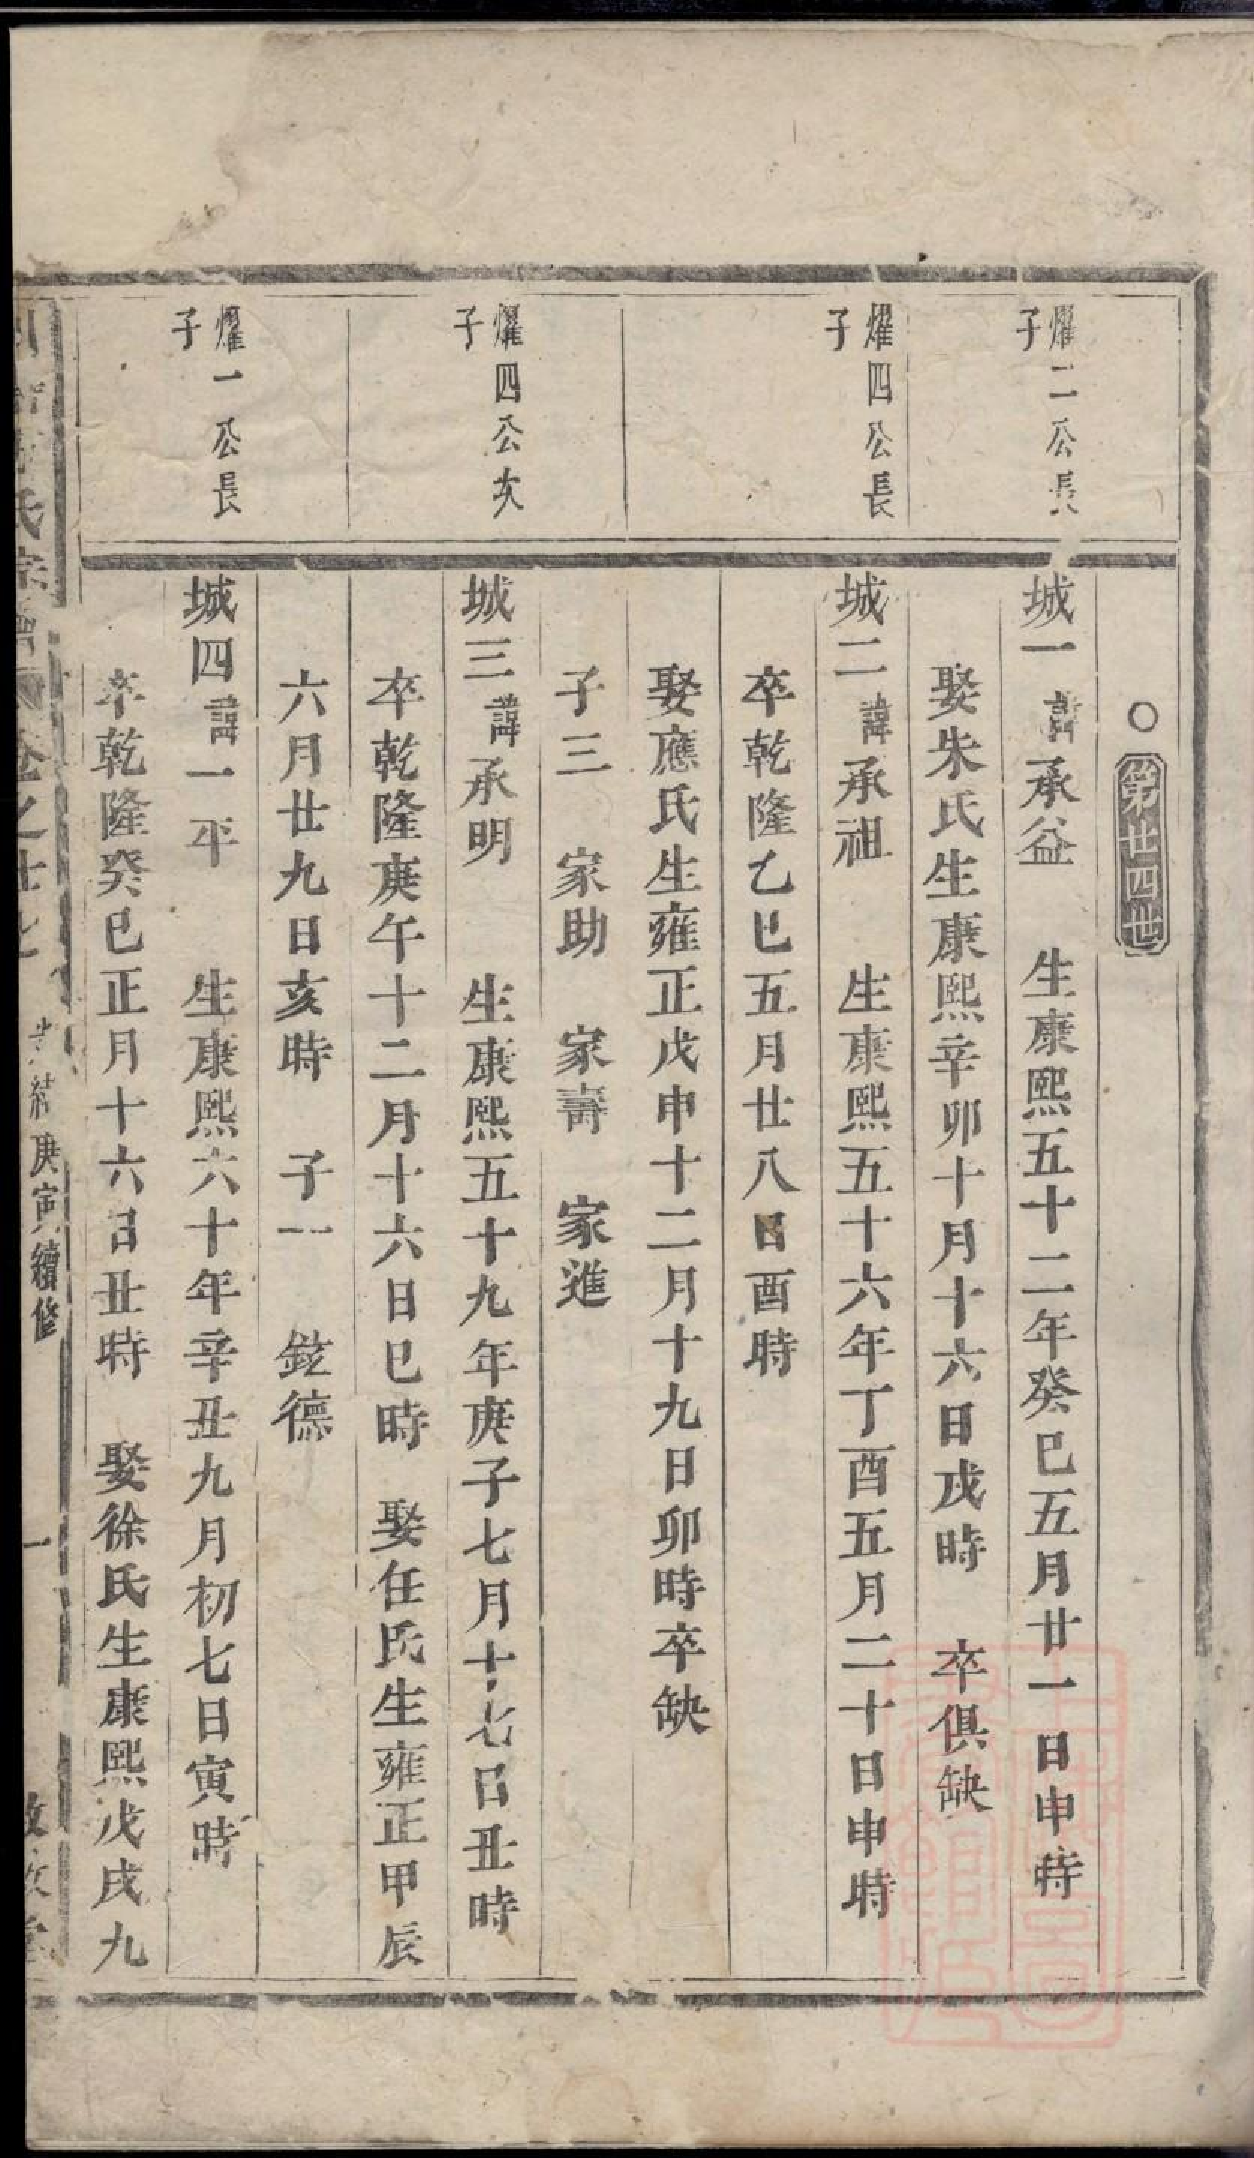 ○第廿四世
燿二公長
子
城一諱承益 生康熙五十二年癸巳五月廿一日申時
娶朱氏生康熙辛卯十月十六日戌時 卒俱缺
燿四公長
子
城二諱承祖 生康熙五十六年丁酉五月二十日申時
卒乾隆乙巳五月廿八日酉時
娶應氏生雍正戊申十二月十九日卯時卒缺
子三 家助 家壽 家進
燿四公次
子
城三諱承明 生康熙五十九年庚子七月十七日丑時
卒乾隆庚午十二月十六日巳時 娶任氏生雍正甲辰
六月廿九日亥時 子一 鉉德
燿一公長
子
城四諱一平 生康熙六十年辛丑九月初七日寅時
卒乾隆癸巳正月十六日丑時 娶徐氏生康熙戊戌九
氏宗譜 卷之廿七 光緒庚寅續修 一 敘敘堂